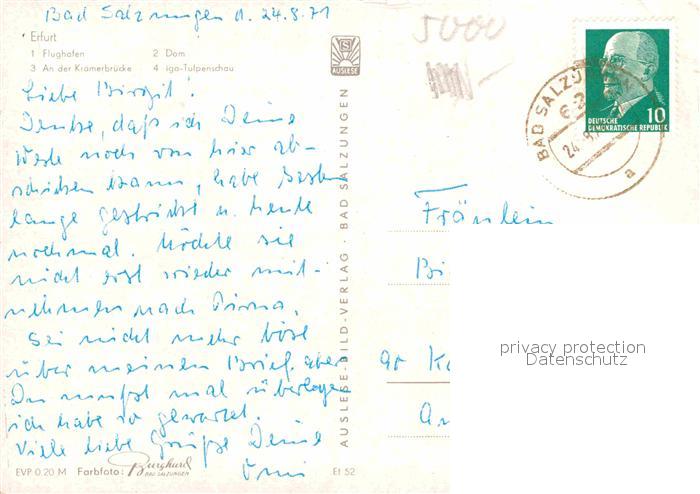 Bad Salzungen d. 24.8.71
5000
Erfurt
1 Flughafen 2 Dom
3 An der Krämerbrücke 4 iga-Tulpenschau
S
AUSLESE
Liebe Birgit!
Denke, daß ich Deine
Weste noch von hier ab-
schicken kann, habe gestern
lange gestrickt u. heute
nochmal. Möchte sie
nicht erst wieder mit-
nehmen nach Pirna.
Sei nicht mehr böse
über meinen Brief, aber
Du mußt mal überlegen
ich habe so gewartet.
Viele liebe Grüße Deine
Omi
EVP 0,20 M Farbfoto: Burghard
BAD SALZUNGEN
Et 52
AUSLESE-BILD-VERLAG · BAD SALZUNGEN
BAD SALZU
24. 8.
a
10
DEUTSCHE
DEMOKRATISCHE REPUBLIK
Fräulein
Bi
privacy protection
Datenschutz